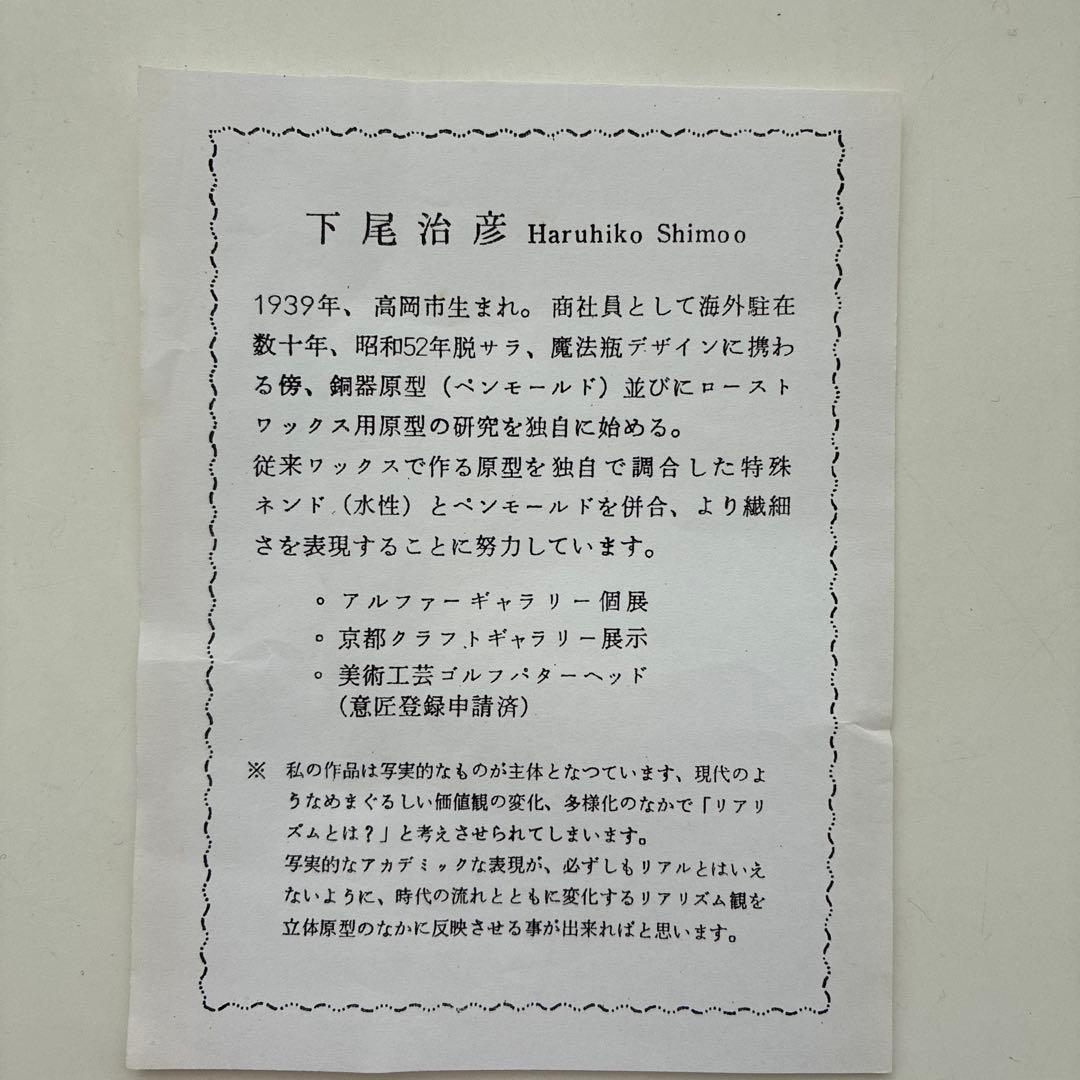 下尾治彦 Haruhiko Shimoo
1939年、高岡市生まれ。商社員として海外駐在
数十年、昭和52年脱サラ、魔法瓶デザインに携わ
る傍、銅器原型（ペンモールド）並びにロースト
ワックス用原型の研究を独自に始める。
従来ワックスで作る原型を独自で調合した特殊
ネンド（水性）とペンモールドを併合、より繊細
さを表現することに努力しています。
○ アルファーギャラリー個展
○ 京都クラフトギャラリー展示
○ 美術工芸ゴルフパターヘッド
（意匠登録申請済）
※ 私の作品は写実的なものが主体となつています、現代のよ
うなめまぐるしい価値観の変化、多様化のなかで「リアリ
ズムとは？」と考えさせられてしまいます。
写実的なアカデミックな表現が、必ずしもリアルとはいえ
ないように、時代の流れとともに変化するリアリズム観を
立体原型のなかに反映させる事が出来ればと思います。